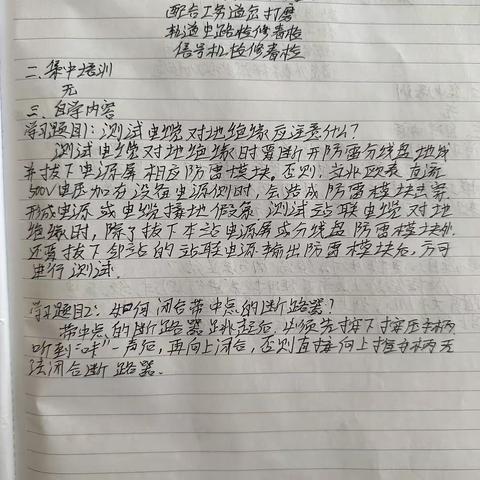 配合工务道岔打磨
轨道电路检修看检
信号机检修看检
二、集中培训
无
三、自学内容
学习题目1: 测试电缆对地绝缘应注意什么?
测试电缆对地绝缘时要断开防雷分线盘地线
并拔下电源屏相应防雷模块。否则,当兆欧表直流
500V电压加在设备电源侧时,会造成防雷模块击穿
形成电源或电缆接地假象。测试站联电缆对地
绝缘时,除了拔下本站电源屏或分线盘防雷模块外
还要拔下邻站的站联电源输出防雷模块后,方可
进行测试.
学习题目2: 如何闭合带中点的断路器?
带中点的断路器跳起后,必须先按下按压手柄
听到“咔”一声后,再向上闭合,否则直接向上推手柄无
法闭合断路器.